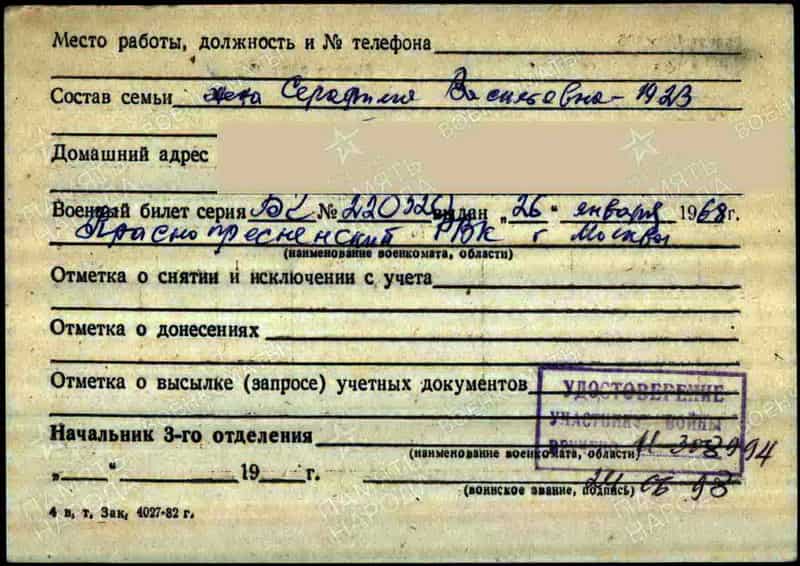 Место работы, должность и № телефона
Состав семьи жена Серафима Васильевна - 1923
Домашний адрес
Военный билет серия № выдан „26“ января 1968 г.
Краснопресненский РВК г Москвы
(наименование военкомата, области)
Отметка о снятии и исключении с учета
Отметка о донесениях
Отметка о высылке (запросе) учетных документов
УДОСТОВЕРЕНИЕ
УЧАСТНИКА ВОЙНЫ
Начальник 3-го отделения
(наименование военкомата, области)
„ “ 19 г.
(воинское звание, подпись)
4 в. т. Зак. 4027-82 г.
ПАМЯТЬ НАРОДА